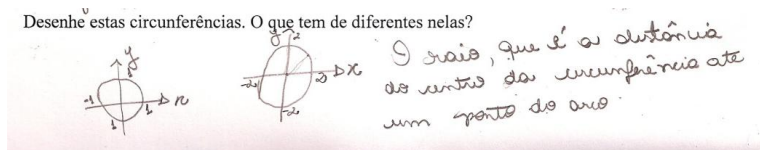 Desenhe estas circunferências. O que tem de diferentes nelas?
y
1
-1
1
x
1
y
2
-2
2
x
-2
O raio, que é a distância
do centro da circunferência ate
um ponto do arco.